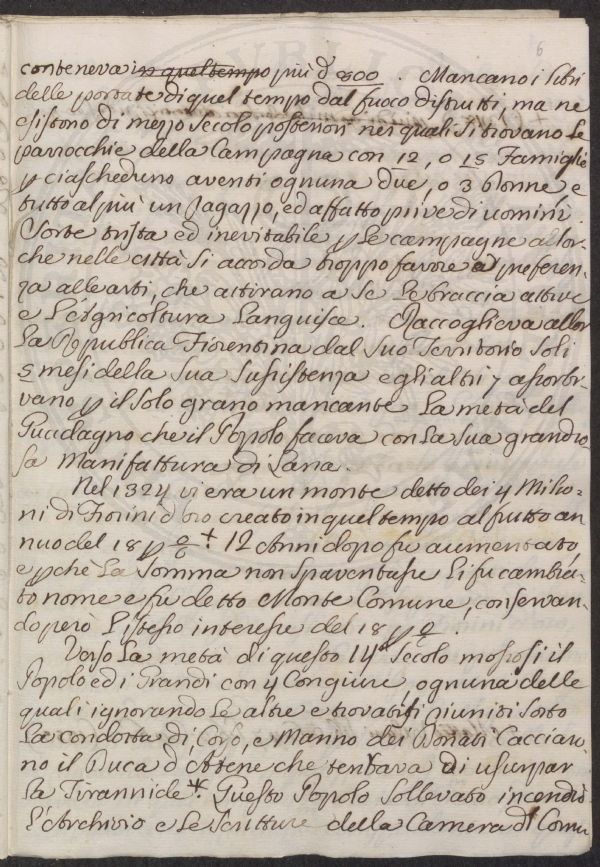 6
conteneva in quel tempo più d 800. Mancano i libri
delle portate di quel tempo dal fuoco distrutti, ma ne
esistono di mezzo secolo posteriori nei quali si trovano le
parrocchie della Campagna con 12, o 15 Famiglie
p ciascheduno aventi ognuna due, o 3 Donne, e
tutto al più un Ragazzo, ed affatto prive di uomini.
Sorte trista ed inevitabile p le campagne allor-
che nelle città si accorda troppo favore e preferen
za alle arti, che attirano a se le braccia attive
e l'Agricoltura languisce. Raccoglieva allor
la Repubblica Fiorentina dal suo Territorio soli
5 mesi della sua sussistenza e gli altri 7 assorbi-
vano p il solo grano mancante la metà del
Guadagno che il Popolo faceva con la sua grandio
sa Manifattura di Lana.
Nel 1324 vi era un monte detto dei 4 Milio-
ni di Fiorini d'oro creato in quel tempo al frutto an
nuo del 18 p % + 12 Anni dopo fu aumentato,
e pchè la somma non spaventasse li fu cambia-
to nome e fu detto Monte Comune, conservan-
do però l'istesso interesse del 18 p %.
Verso la metà di questo 14° Secolo mossosi il
Popolo ed i Grandi con 4 Congiure ognuna delle
quali ignorando le altre e trovatisi riuniti sotto
la condotta di Corso, e Manno dei Donati Cacciaro
no il Duca d Atene che tentava di usurpar
la Tirannide*. Questo Popolo sollevato incendiò
l'Archivio e le scritture della Camera di Comu